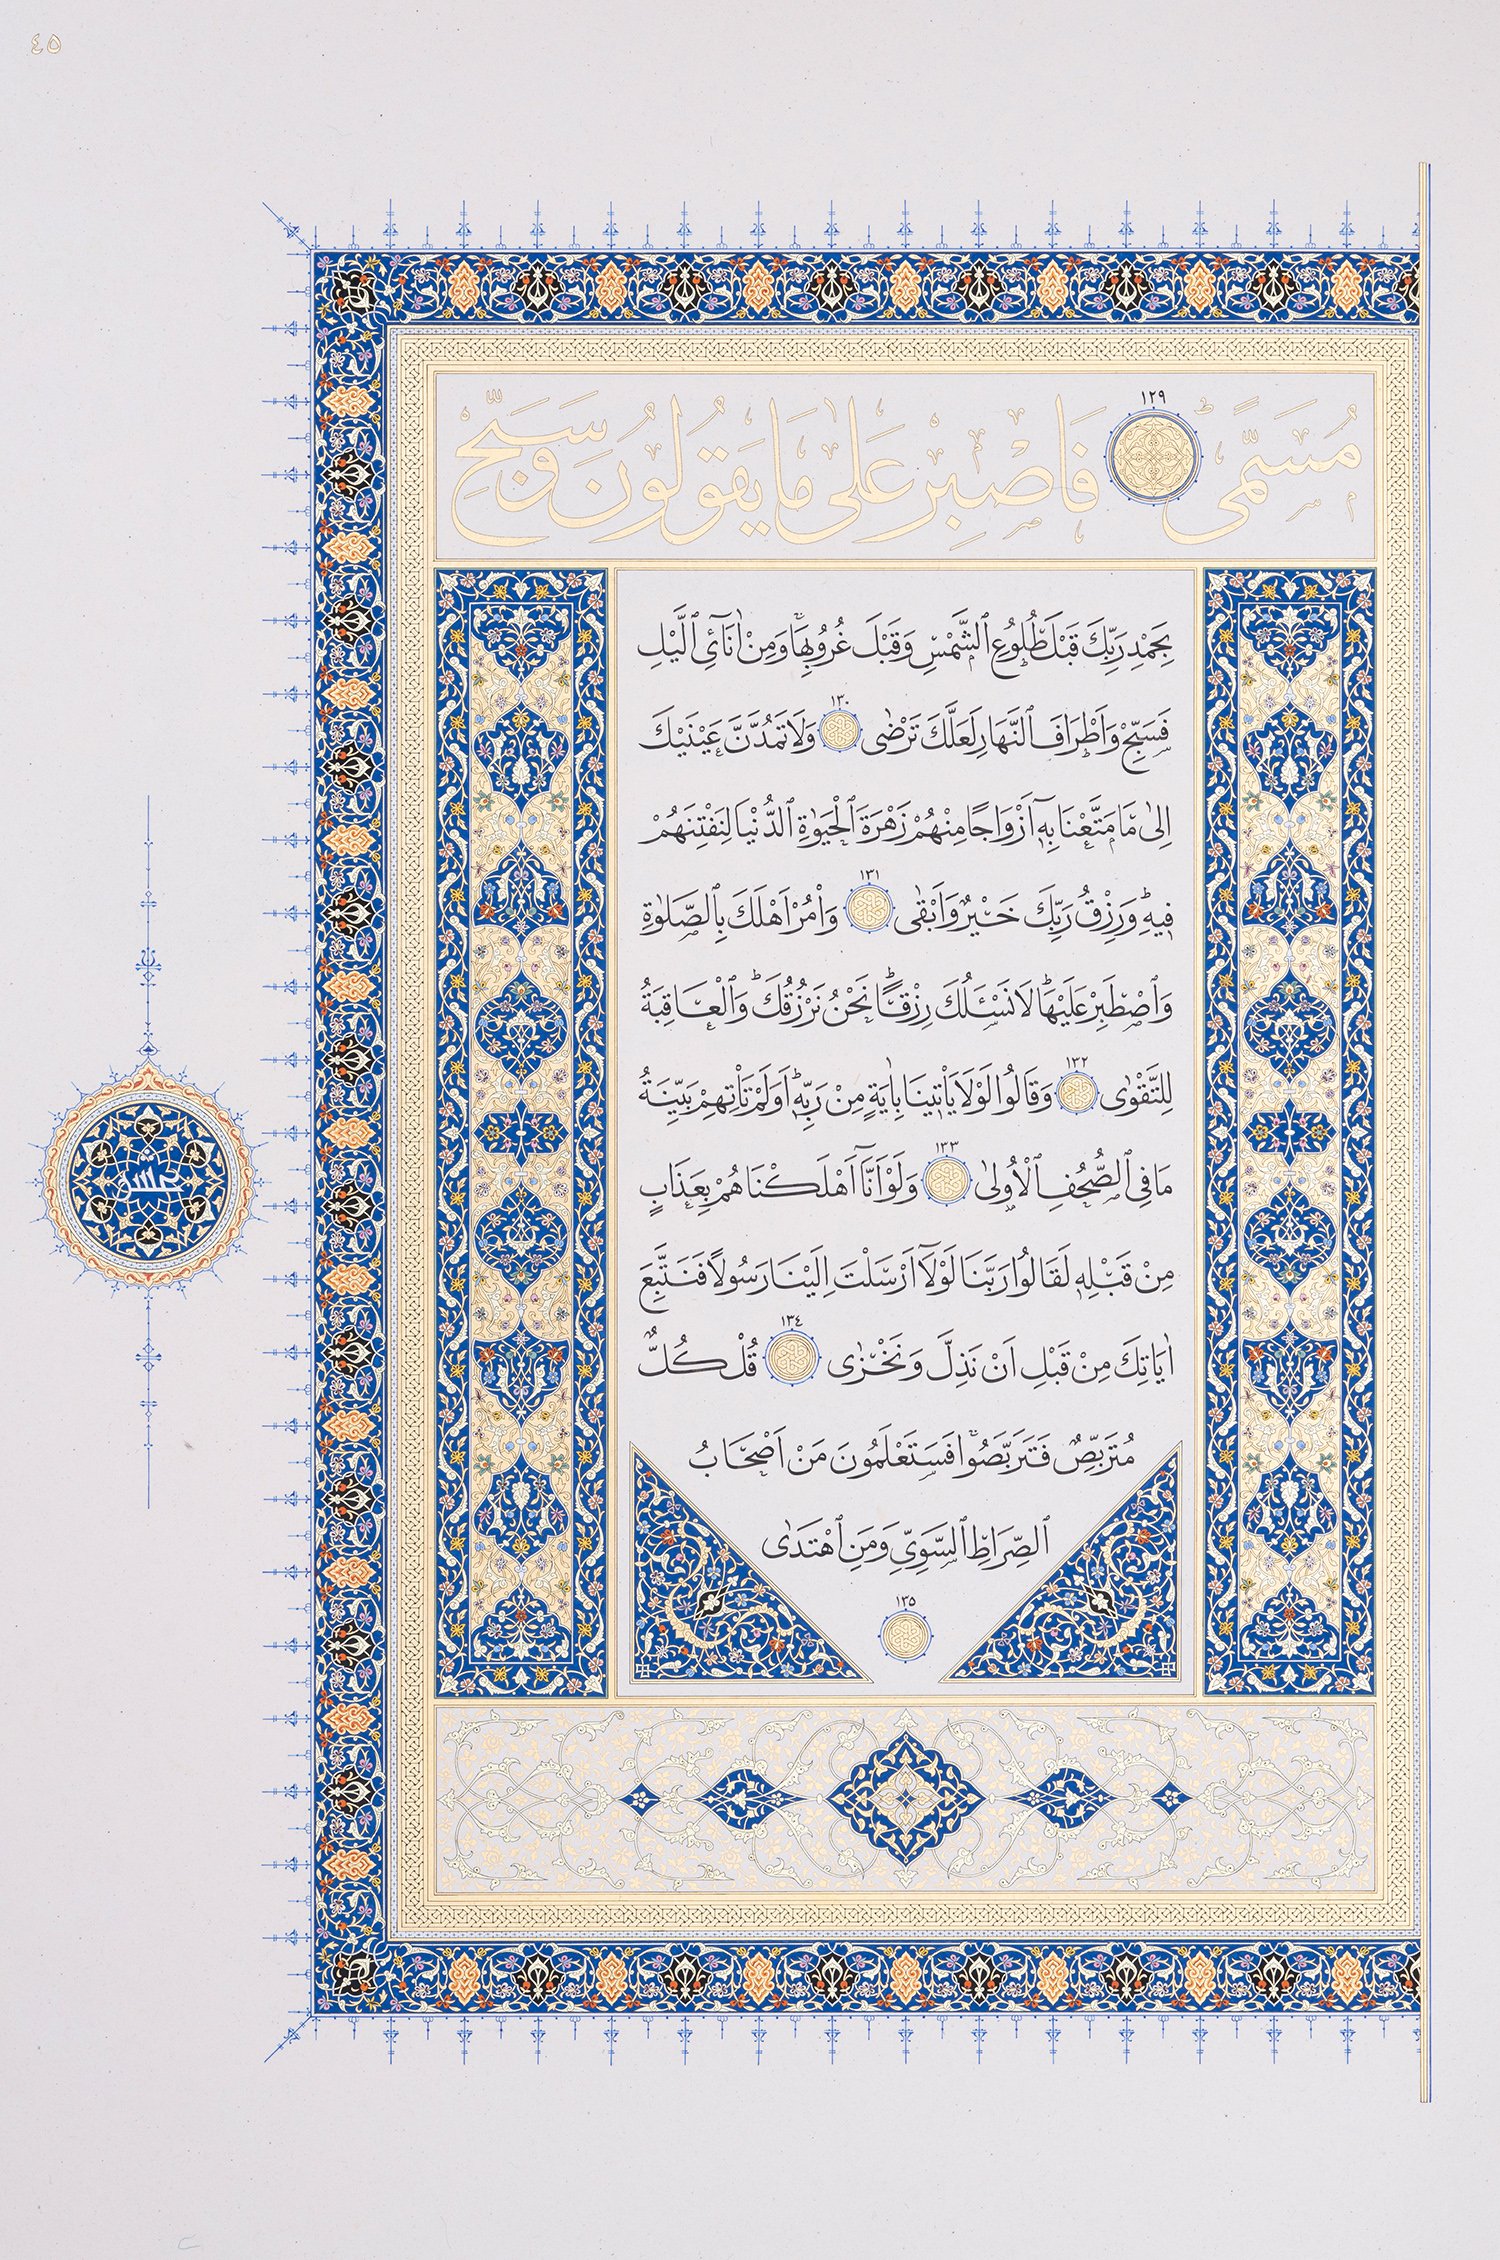 ٤٥
مُسَمًّىۜ ١٢٩ فَاصْبِرْ عَلٰى مَا يَقُولُونَ وَسَبِّحْ
بِحَمْدِ رَبِّكَ قَبْلَ طُلُوعِ ٱلشَّمْسِ وَقَبْلَ غُرُوبِهَاۚ وَمِنْ اٰنَآئِ ٱلَّيْلِ
فَسَبِّحْ وَاَطْرَافَ ٱلنَّهَارِ لَعَلَّكَ تَرْضٰى ١٣٠ وَلَا تَمُدَّنَّ عَيْنَيْكَ
اِلٰى مَا مَتَّعْنَا بِهٖٓ اَزْوَاجًا مِنْهُمْ زَهْرَةَ ٱلْحَيٰوةِ ٱلدُّنْيَا لِنَفْتِنَهُمْ
فِيهِۜ وَرِزْقُ رَبِّكَ خَيْرٌ وَاَبْقٰى ١٣١ وَاْمُرْ اَهْلَكَ بِٱلصَّلٰوةِ
وَٱصْطَبِرْ عَلَيْهَاۜ لَا نَسْـَٔلُكَ رِزْقًاۜ نَحْنُ نَرْزُقُكَۜ وَٱلْعَاقِبَةُ
لِلتَّقْوٰى ١٣٢ وَقَالُوا لَوْلَا يَاْتِينَا بِاٰيَةٍ مِنْ رَبِّهٖۜ اَوَلَمْ تَاْتِهِمْ بَيِّنَةُ
مَا فِي ٱلصُّحُفِ ٱلْاُو۫لٰى ١٣٣ وَلَوْ اَنَّآ اَهْلَكْنَاهُمْ بِعَذَابٍ
مِنْ قَبْلِهٖ لَقَالُوا رَبَّنَا لَوْلَآ اَرْسَلْتَ اِلَيْنَا رَسُولًا فَنَتَّبِعَ
اٰيَاتِكَ مِنْ قَبْلِ اَنْ نَذِلَّ وَنَخْزٰى ١٣٤ قُلْ كُلٌّ
مُتَرَبِّصٌ فَتَرَبَّصُواۚ فَسَتَعْلَمُونَ مَنْ اَصْحَابُ
ٱلصِّرَاطِ ٱلسَّوِيِّ وَمَنِ ٱهْتَدٰى
١٣٥